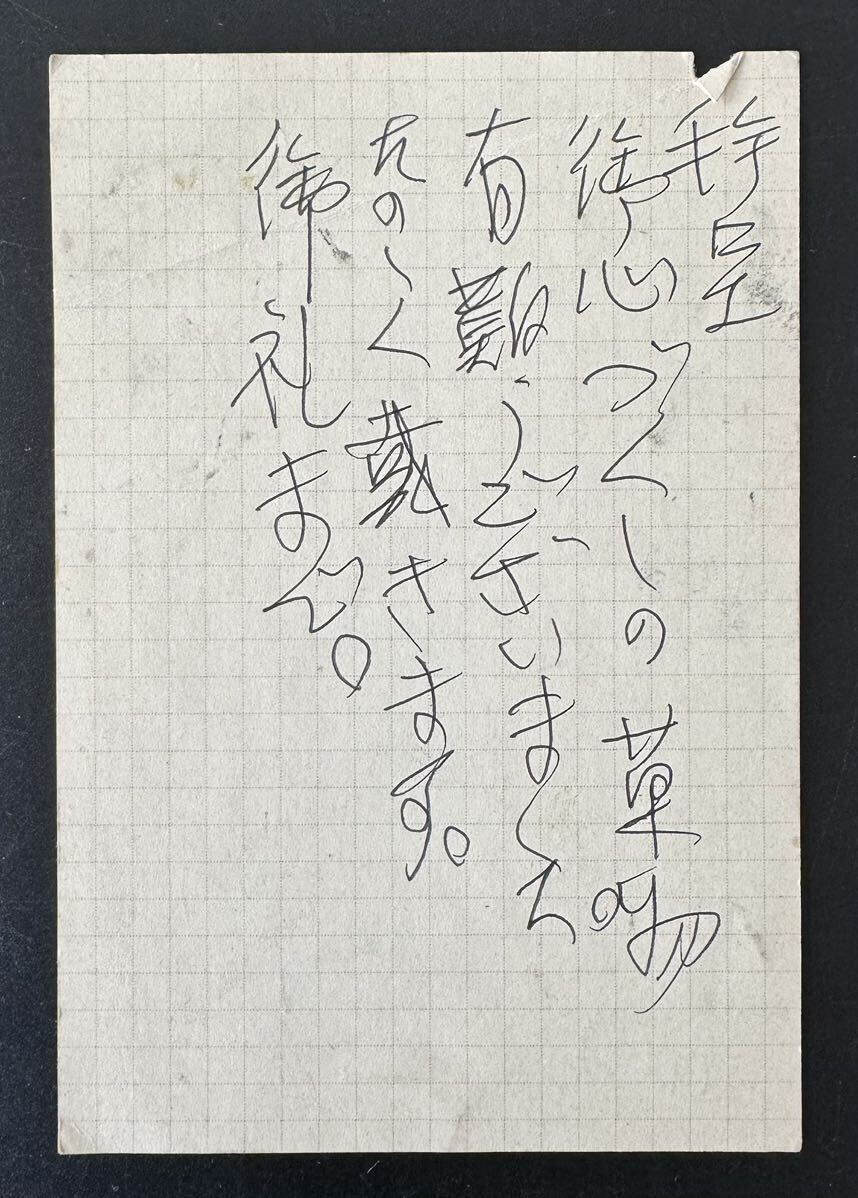 拝呈
御心づくしの草
有難うございました
たのしく戴きます。
御礼まで。